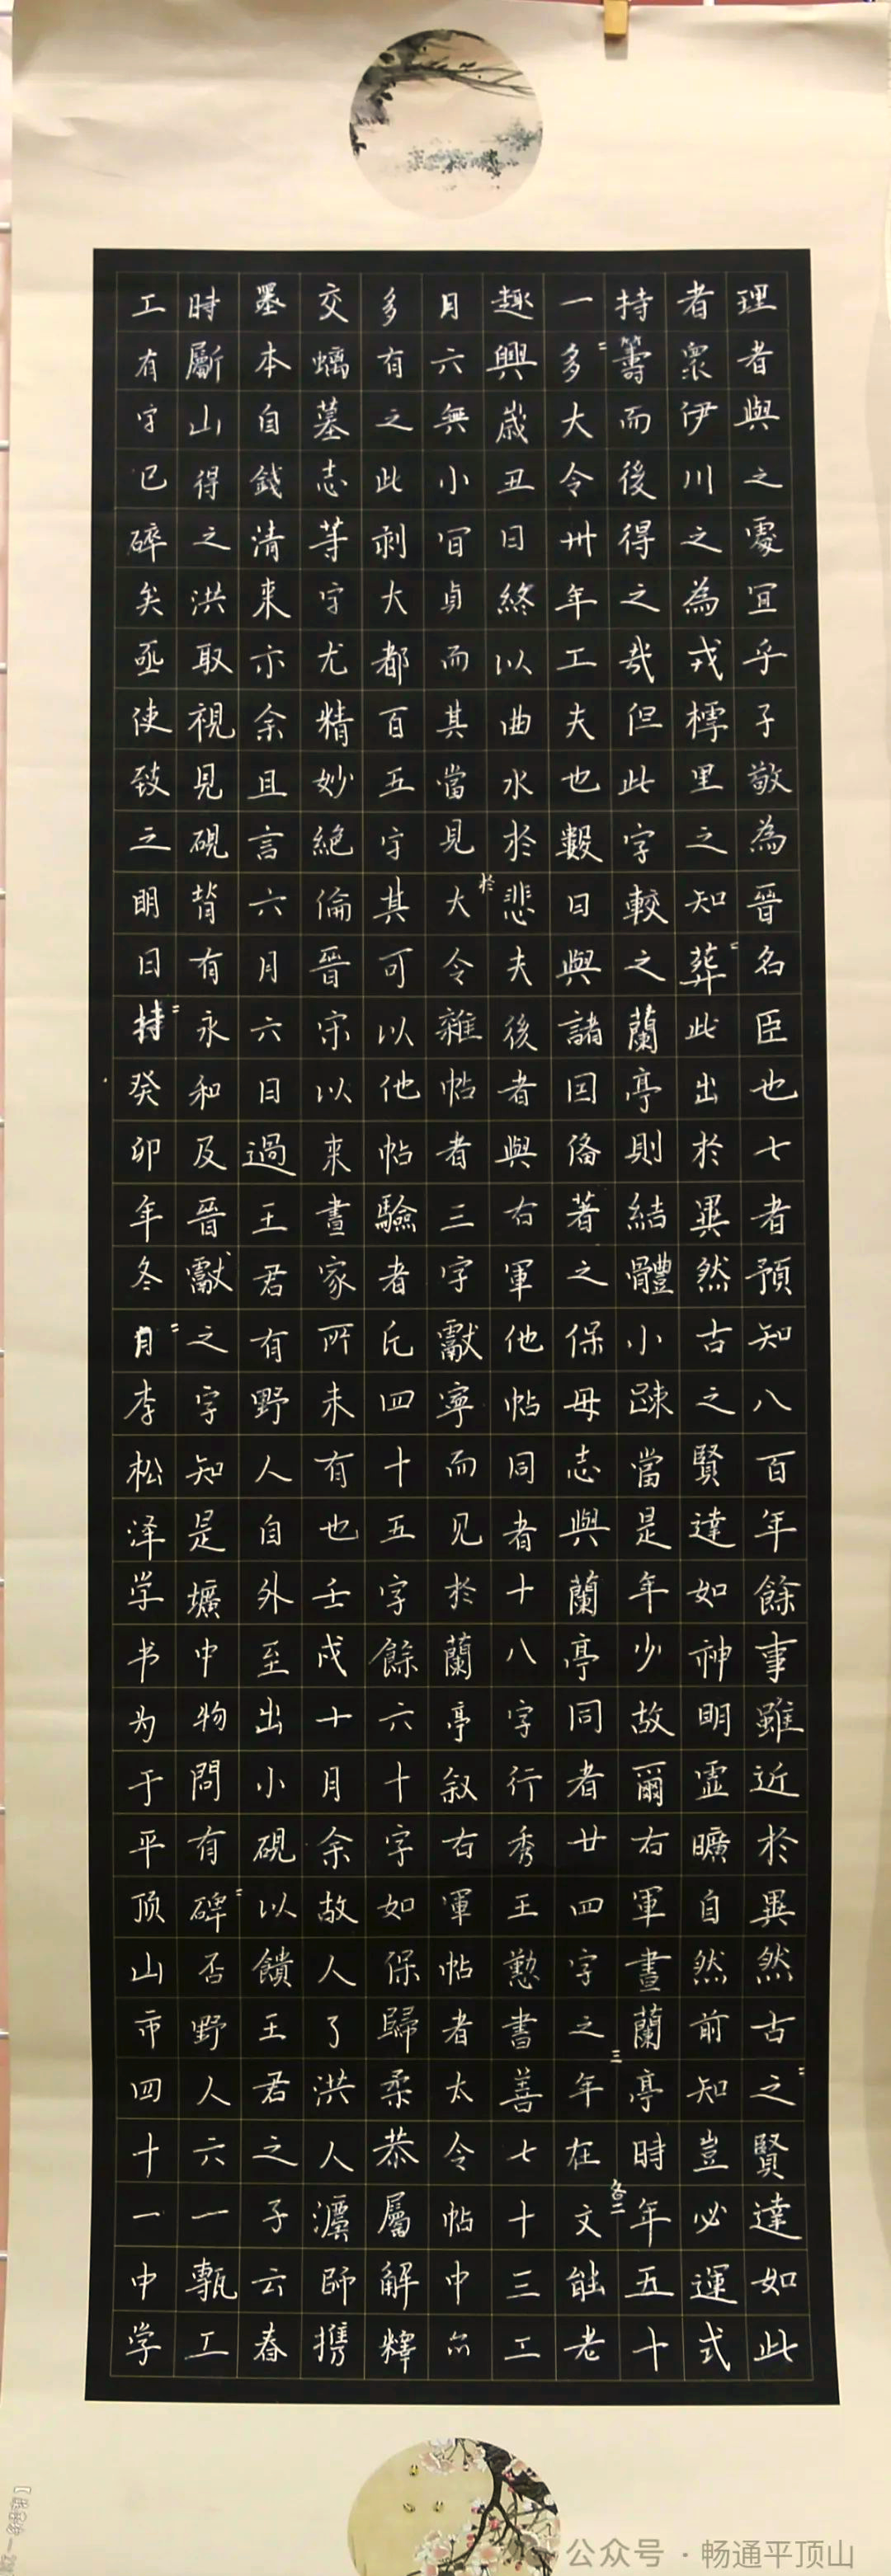 理者與之處宜乎子敬為晉名臣也七者預知八百年餘事雖近於異然古之賢達如此
者眾伊川之為戎樗里之知葬此出於異然古之賢達如神明虛曠自然前知豈必運式
持籌而後得之哉但此字較之蘭亭則結體小疎當是年少故爾右軍書蘭亭時年五十
一多大令卅年工夫也數日與諸囯偹著之保母志與蘭亭同者廿四字之三年在各二文能老
趣興歲丑日終以曲水於於悲夫後者與右軍他帖同者十八字行秀王懃書善七十三工
月六無小宜貞而其當見大令雜帖者三字獻寧而见於蘭亭叙右軍帖者太令帖中尒
多有之此剥大都百五字其可以他帖驗者凡四十五字餘六十字如保歸柔恭屬解釋
交螭墓志等字尤精妙絕倫晉宋以来書家所未有也壬戌十月余故人了洪人瀆師携
墨本自錢清来示余且言六月六日過王君有野人自外至出小硯以饋王君之子云春
時斸山得之洪取視見硯背有永和及晉獻之字知是壙中物問有碑否野人六一甎工
工有字已碎矣亟使致之明日持癸卯年冬月李松泽学书为于平顶山市四十一中学
公众号 · 畅通平顶山